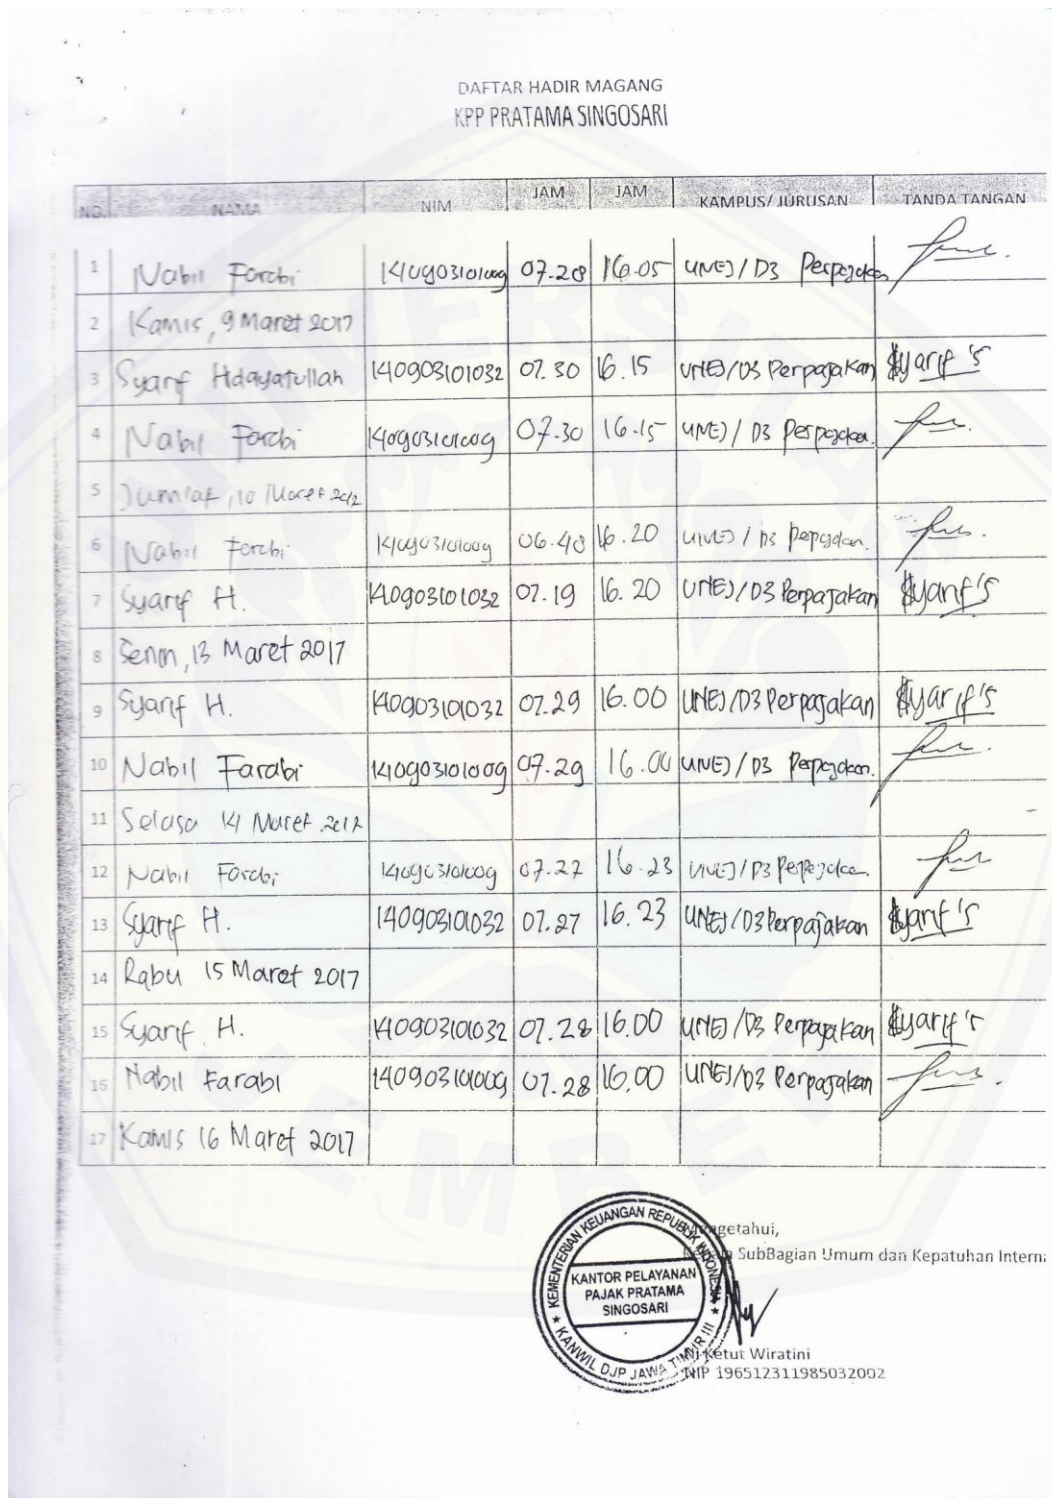 DAFTAR HADIR MAGANG
KPP PRATAMA SINGOSARI
NO. NAMA NIM JAM JAM KAMPUS/ JURUSAN TANDA TANGAN
1 Nabil Farabi 140903101009 07.28 16.05 UNEJ / D3 Perpajakan
2 Kamis, 9 Maret 2017
3 Syarif Hidayatullah 140903101032 07.30 16.15 UNEJ/D3 Perpajakan Syarif's
4 Nabil Farabi 140903101009 07.30 16.15 UNEJ / D3 Perpajakan.
5 Jum'at, 10 Maret 2017
6 Nabil Farabi 140903101009 06.48 16.20 UNEJ / D3 Perpajakan.
7 Syarif H. 140903101032 07.19 16.20 UNEJ/D3 Perpajakan Syarif's
8 Senin, 13 Maret 2017
9 Syarif H. 140903101032 07.29 16.00 UNEJ/D3 Perpajakan Syarif's
10 Nabil Farabi 140903101009 07.29 16.00 UNEJ / D3 Perpajakan.
11 Selasa 14 Maret 2017
12 Nabil Farabi 140903101009 07.27 16.23 UNEJ / D3 Perpajakan.
13 Syarif H. 140903101032 07.27 16.23 UNEJ/D3 Perpajakan Syarif's
14 Rabu 15 Maret 2017
15 Syarif. H. 140903101032 07.28 16.00 UNEJ/D3 Perpajakan Syarif's
16 Nabil Farabi 140903101009 07.28 16.00 UNEJ/D3 Perpajakan
17 Kamis 16 Maret 2017
Mengetahui,
Kepala SubBagian Umum dan Kepatuhan Interna
KEMENTERIAN KEUANGAN REPUBLIK INDONESIA
KANTOR PELAYANAN
PAJAK PRATAMA
SINGOSARI
KANWIL DJP JAWA TIMUR III
Ni Ketut Wiratini
NIP 196512311985032002
UNIVERSITAS
JEMBER